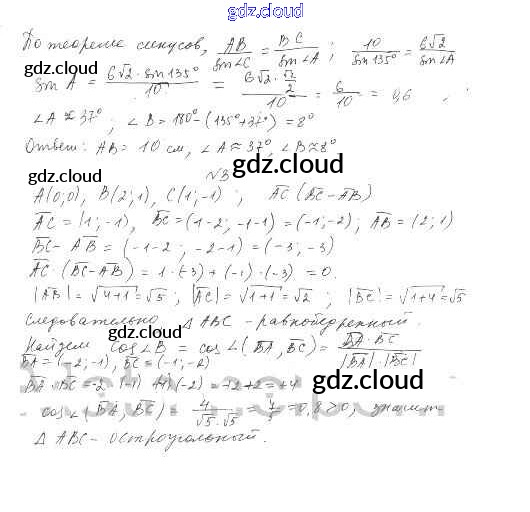 gdz.cloud
По теореме синусов, AB/sin∠C = BC/sin∠A ; 10/sin135° = 6√2/sin∠A
gdz.cloud
sin A = 6√2 · sin135°/10 = 6√2 · √2/2/10 = 6/10 = 0,6
gdz.cloud
∠A ≈ 37° ; ∠B = 180° - (135°+37°) = 8°
Ответ: AB = 10 см, ∠A ≈ 37°, ∠B ≈ 8°
gdz.cloud
№3
A(0;0), B(2;1), C(1;-1) ; AC (BC-AB)
gdz.cloud
AC = (1;-1), BC = (1-2; -1-1) = (-1;-2); AB = (2;1)
BC - AB = (-1-2; -2-1) = (-3;-3)
gdz.cloud
AC · (BC-AB) = 1·(-3) + (-1)·(-3) = 0.
|AB| = √4+1 = √5 ; |AC| = √1+1 = √2 ; |BC| = √1+4 = √5
gdz.cloud
Следовательно △ABC - равнобедренный.
gdz.cloud
Найдем cos∠B = cos∠(BA, BC) = BA · BC/|BA| · |BC|
BA = (-2;-1), BC = (-1;-2)
BA · BC = -2·(-1) + (-1)·(-2) = +2+2 = +4
gdz.cloud
cos∠(BA, BC) = 4/√5·√5 = 4/5 = 0,8 > 0, значит
△ABC - остроугольный.
gdz.cloud